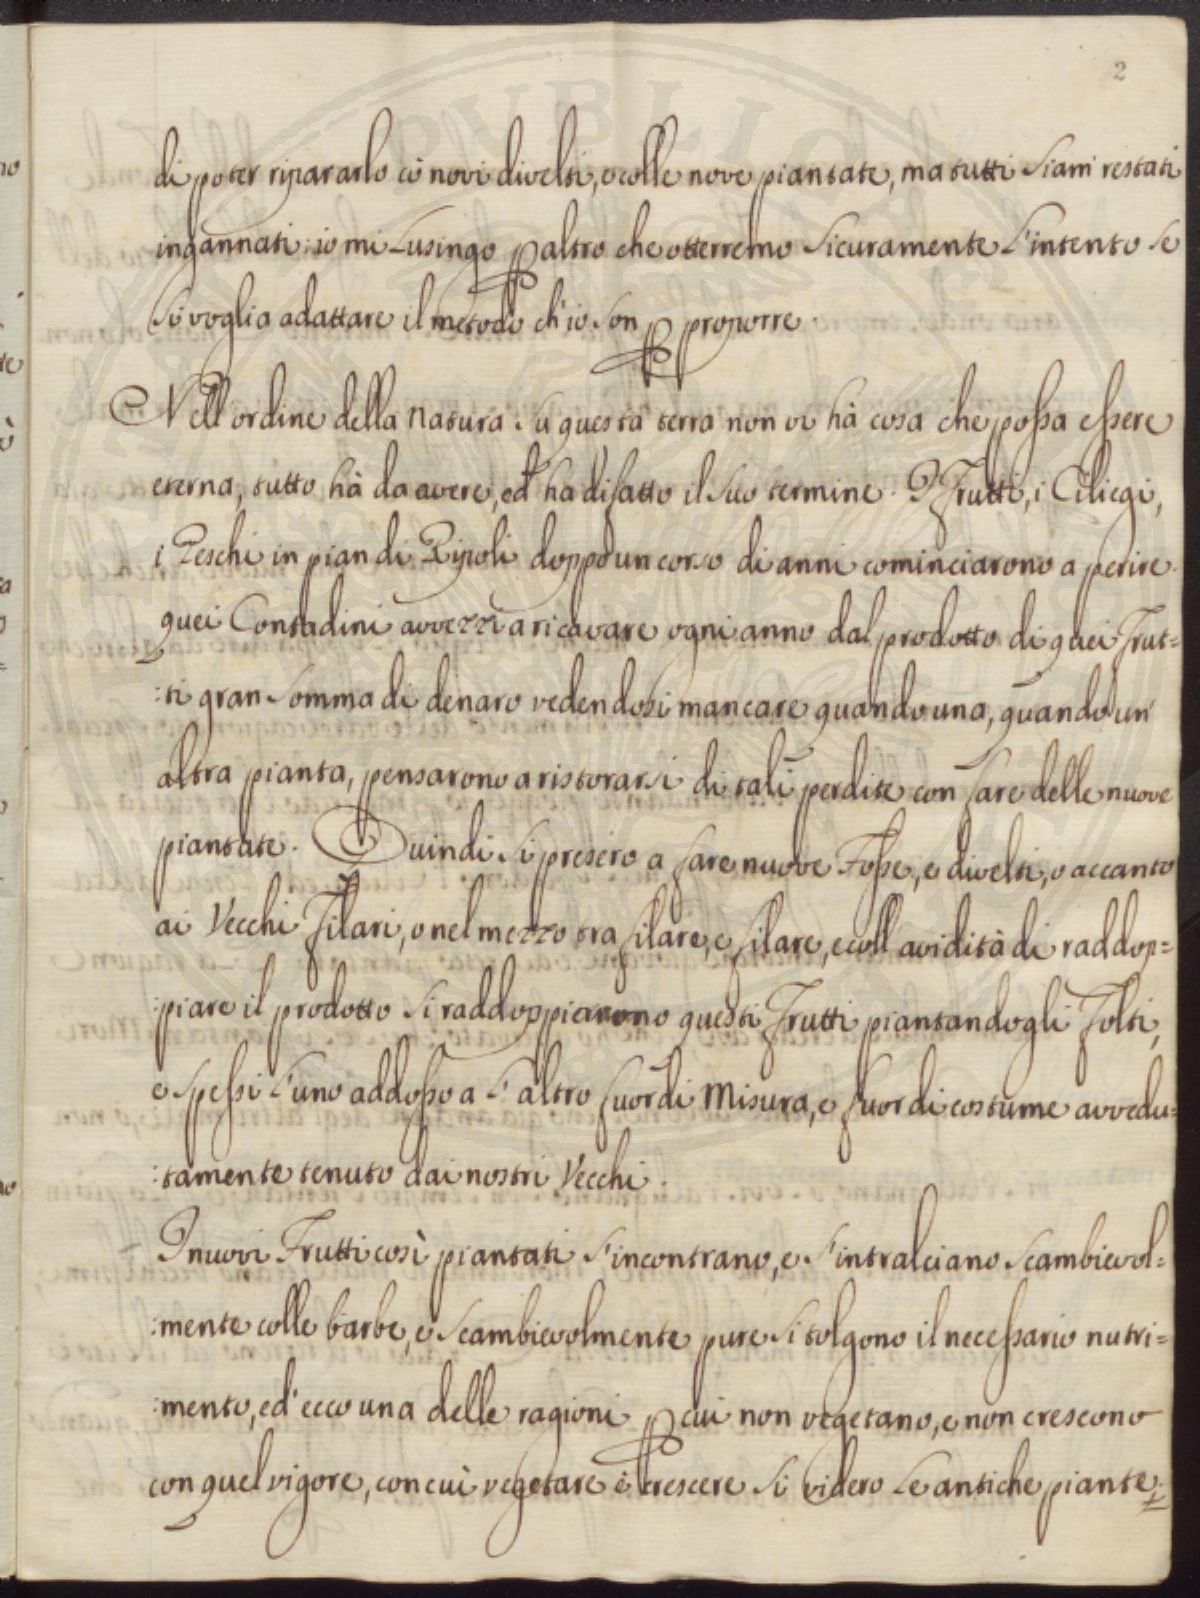 2
di poter ripararlo cō novi divelti, e colle nove piantate, ma tutti siam restati
ingannati: io mi lusingo ꝑ altro che otterremo sicuramente l'intento se
si voglia adattare il metodo ch'io son ꝑ proporre.
Nell'ordine della natura su questa terra non vi hà cosa che possa essere
eterna, tutto hà da avere, ed hà difatto il suo termine. I Frutti, i Ciliegi,
i Peschi in pian di Ripoli doppo un corso di anni cominciarono a perire.
quei Contadini avvezzi a ricavare ogni anno dal prodotto di quei Frut=
:ti gran somma di denaro vedendosi mancare quando una, quando un'
altra pianta, pensarono a ristorarsi di tali perdite con fare delle nuove
piantate. Quindi si presero a fare nuove Fosse, e divelti, o accanto
ai Vecchi Filari, o nel mezzo tra filare, e filare, e coll'avidità di raddop=
:piare il prodotto si raddoppiarono questi Frutti piantandogli Folti,
e spessi l'uno addosso a l'altro fuor di misura, e fuor di costume avvedu=
:tamente tenuto dai nostri Vecchi.
I nuovi Frutti così piantati s'incontrano, e s'intralciano scambievol=
:mente colle barbe, e scambievolmente pure si tolgono il necessario nutri=
:mento, ed ecco una delle ragioni ꝑ cui non vegetano, e non crescono
con quel vigore, con cui vegetare e crescere si videro le antiche piante;